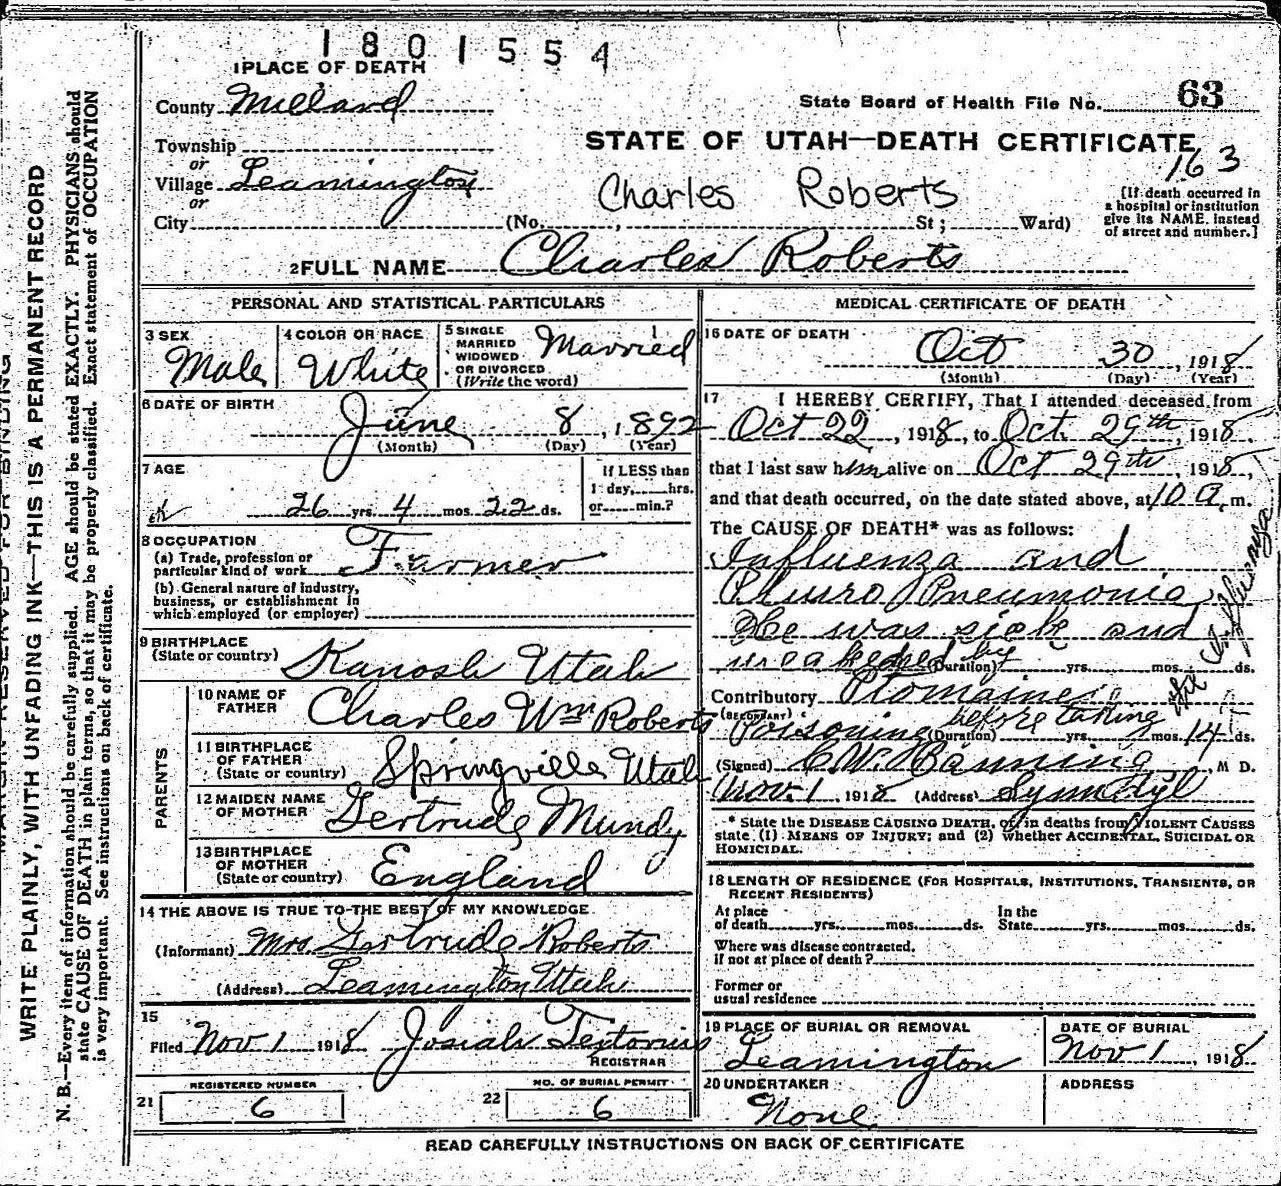 1801554
1 PLACE OF DEATH
County Millard
State Board of Health File No. 63
STATE OF UTAH—DEATH CERTIFICATE
163
Township
or
Village Leamington
or
City
Charles Roberts
(No. , St; Ward)
[If death occurred in
a hospital or institution
give its NAME instead
of street and number.]
2 FULL NAME Charles Roberts
PERSONAL AND STATISTICAL PARTICULARS
3 SEX
Male
4 COLOR OR RACE
White
5 SINGLE
MARRIED
WIDOWED
OR DIVORCED
(Write the word)
Married
6 DATE OF BIRTH
June 8, 1892
(Month) (Day) (Year)
7 AGE
26 yrs. 4 mos. 22 ds.
If LESS than
1 day, hrs.
or min.?
8 OCCUPATION
(a) Trade, profession or
particular kind of work Farmer
(b) General nature of industry,
business, or establishment in
which employed (or employer)
9 BIRTHPLACE
(State or country) Kanosh Utah
PARENTS
10 NAME OF
FATHER Charles Wm Roberts
11 BIRTHPLACE
OF FATHER
(State or country) Springville Utah
12 MAIDEN NAME
OF MOTHER Gertrude Mundy
13 BIRTHPLACE
OF MOTHER
(State or country) England
14 THE ABOVE IS TRUE TO THE BEST OF MY KNOWLEDGE
(Informant) Mrs Gertrude Roberts
(Address) Leamington Utah
15
Filed Nov 1 1918 Josiah Tertorius
REGISTRAR
21 REGISTERED NUMBER
6
22 NO. OF BURIAL PERMIT
6
MEDICAL CERTIFICATE OF DEATH
16 DATE OF DEATH
Oct 30, 1918
(Month) (Day) (Year)
17 I HEREBY CERTIFY, That I attended deceased from
Oct 22, 1918, to Oct. 29th, 1918.
that I last saw him alive on Oct 29th, 1918,
and that death occurred, on the date stated above, at 10 a m.
The CAUSE OF DEATH* was as follows:
Influenza and
Pluro Pneumonia
He was sick and
weakened by
(Duration) yrs. mos. ds.
Contributory Ptomaine
(SECONDARY) Poisoning before taking
(Duration) yrs. mos. 14 ds.
the Influenza
(Signed) C.W. Banning, M D.
Nov. 1 1918 (Address) Lynndyl
* State the DISEASE CAUSING DEATH, or, in deaths from VIOLENT CAUSES
state (1) MEANS OF INJURY; and (2) whether ACCIDENTAL, SUICIDAL OR
HOMICIDAL.
18 LENGTH OF RESIDENCE (FOR HOSPITALS, INSTITUTIONS, TRANSIENTS, OR
RECENT RESIDENTS)
At place
of death yrs. mos. ds.
In the
State yrs. mos. ds.
Where was disease contracted,
if not at place of death?
Former or
usual residence
19 PLACE OF BURIAL OR REMOVAL
Leamington
DATE OF BURIAL
Nov 1, 1918
20 UNDERTAKER
None
ADDRESS
READ CAREFULLY INSTRUCTIONS ON BACK OF CERTIFICATE
MARGIN RESERVED FOR BINDING
WRITE PLAINLY, WITH UNFADING INK—THIS IS A PERMANENT RECORD
N. B.—Every item of information should be carefully supplied. AGE should be stated EXACTLY. PHYSICIANS should
state CAUSE OF DEATH in plain terms, so that it may be properly classified. Exact statement of OCCUPATION
is very important. See instructions on back of certificate.